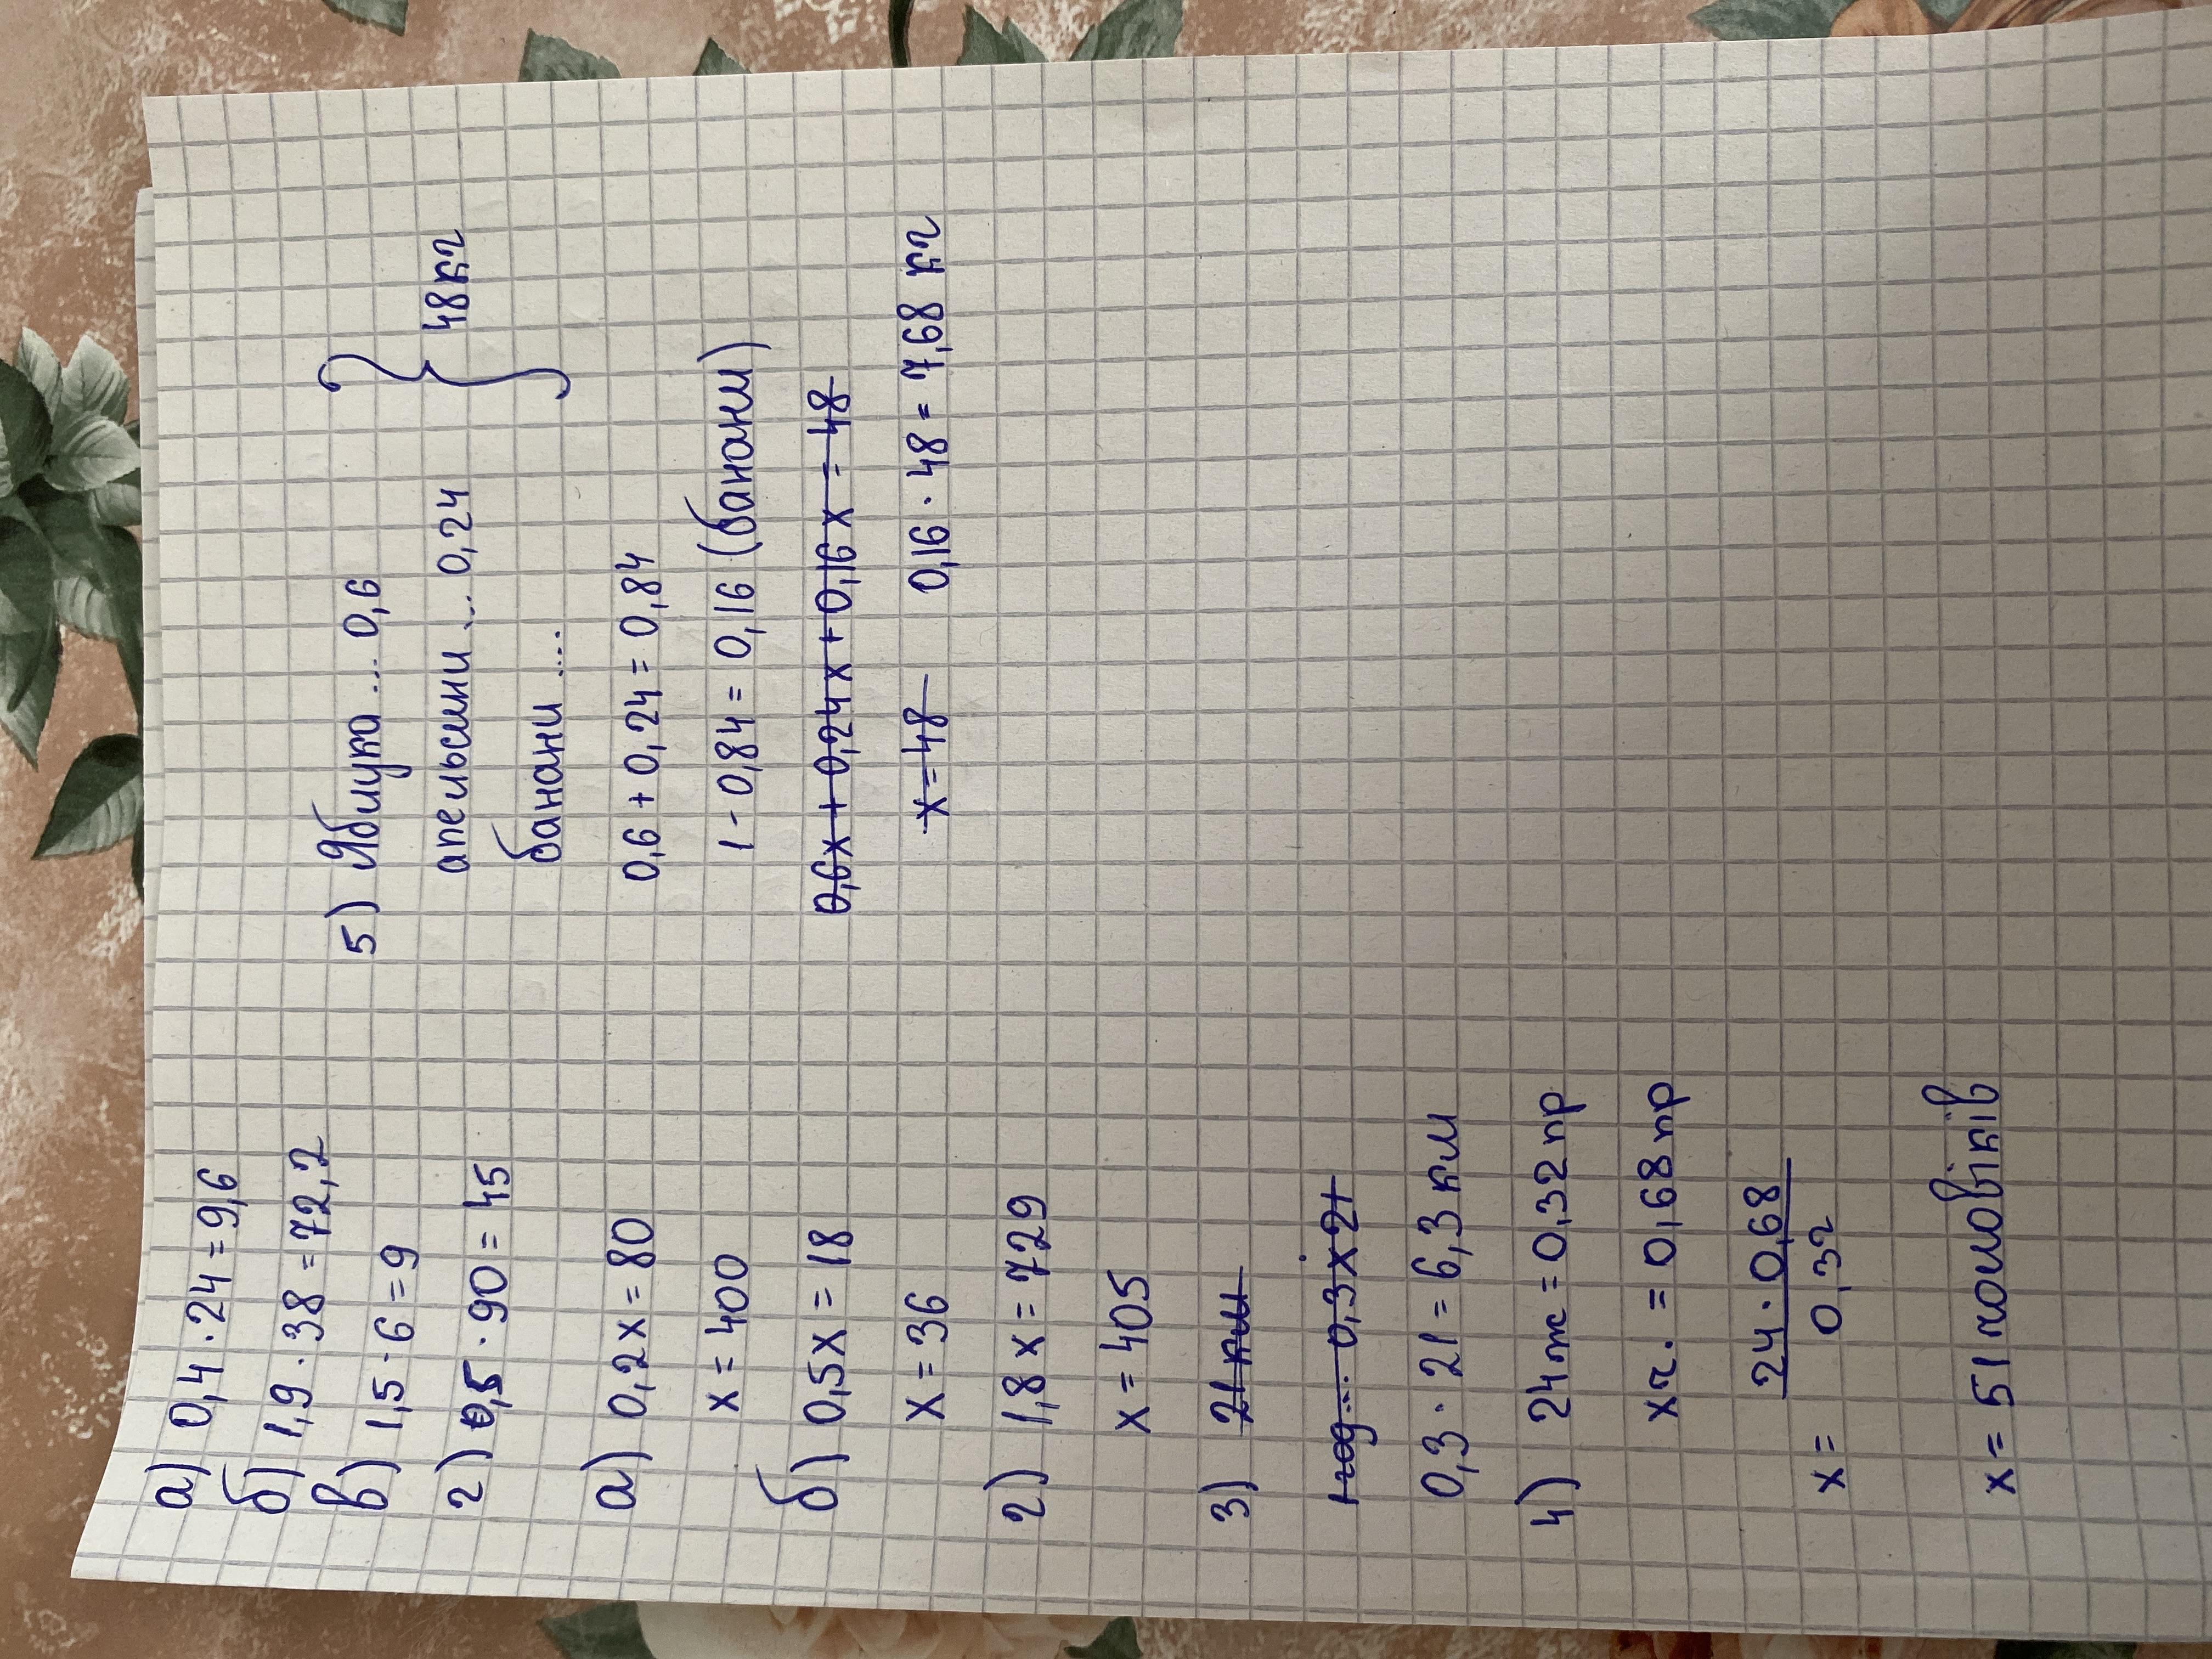 а) 0,4 · 24 = 9,6
б) 1,9 · 38 = 72,2
в) 1,5 · 6 = 9
г) 0,5 · 90 = 45
а) 0,2х = 80
х = 400
б) 0,5х = 18
х = 36
2) 1,8х = 729
х = 405
3) 21 км
1 год... 0,3 х 21
0,3 · 21 = 6,3 км
4) 24ж = 0,32 пр
хч. = 0,68 пр
х = 24 · 0,68 / 0,32
х = 51 чоловіків
5) Яблука ... 0,6
апельсини ... 0,24 } 48кг
банани ....
0,6 + 0,24 = 0,84
1 - 0,84 = 0,16 (банани)
0,6х + 0,24х + 0,16х = 48
х = 48 0,16 · 48 = 7,68 кг